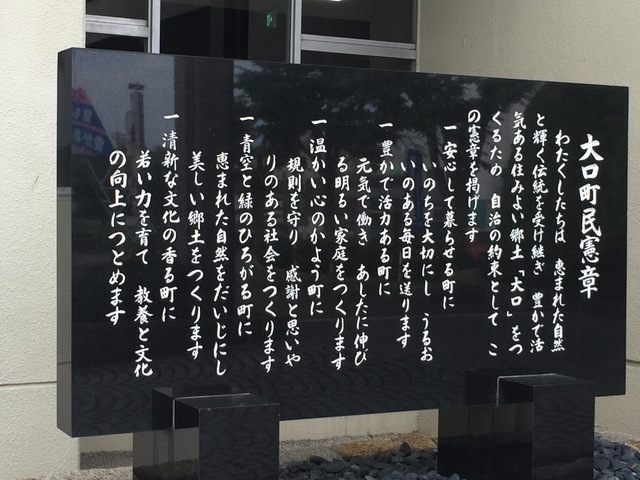 大口町民憲章
わたくしたちは 恵まれた自然
と輝く伝統を受け継ぎ 豊かで活
気ある住みよい郷土「大口」をつ
くるため 自治の約束として こ
の憲章を掲げます
一 安心して暮らせる町に
いのちを大切にし うるお
いのある毎日を送ります
一 豊かで活力ある町に
元気で働き あしたに伸び
る明るい家庭をつくります
一 温かい心のかよう町に
規則を守り 感謝と思いや
りのある社会をつくります
一 青空と緑のひろがる町に
恵まれた自然をだいじにし
美しい郷土をつくります
一 清新な文化の香る町に
若い力を育て 教養と文化
の向上につとめます